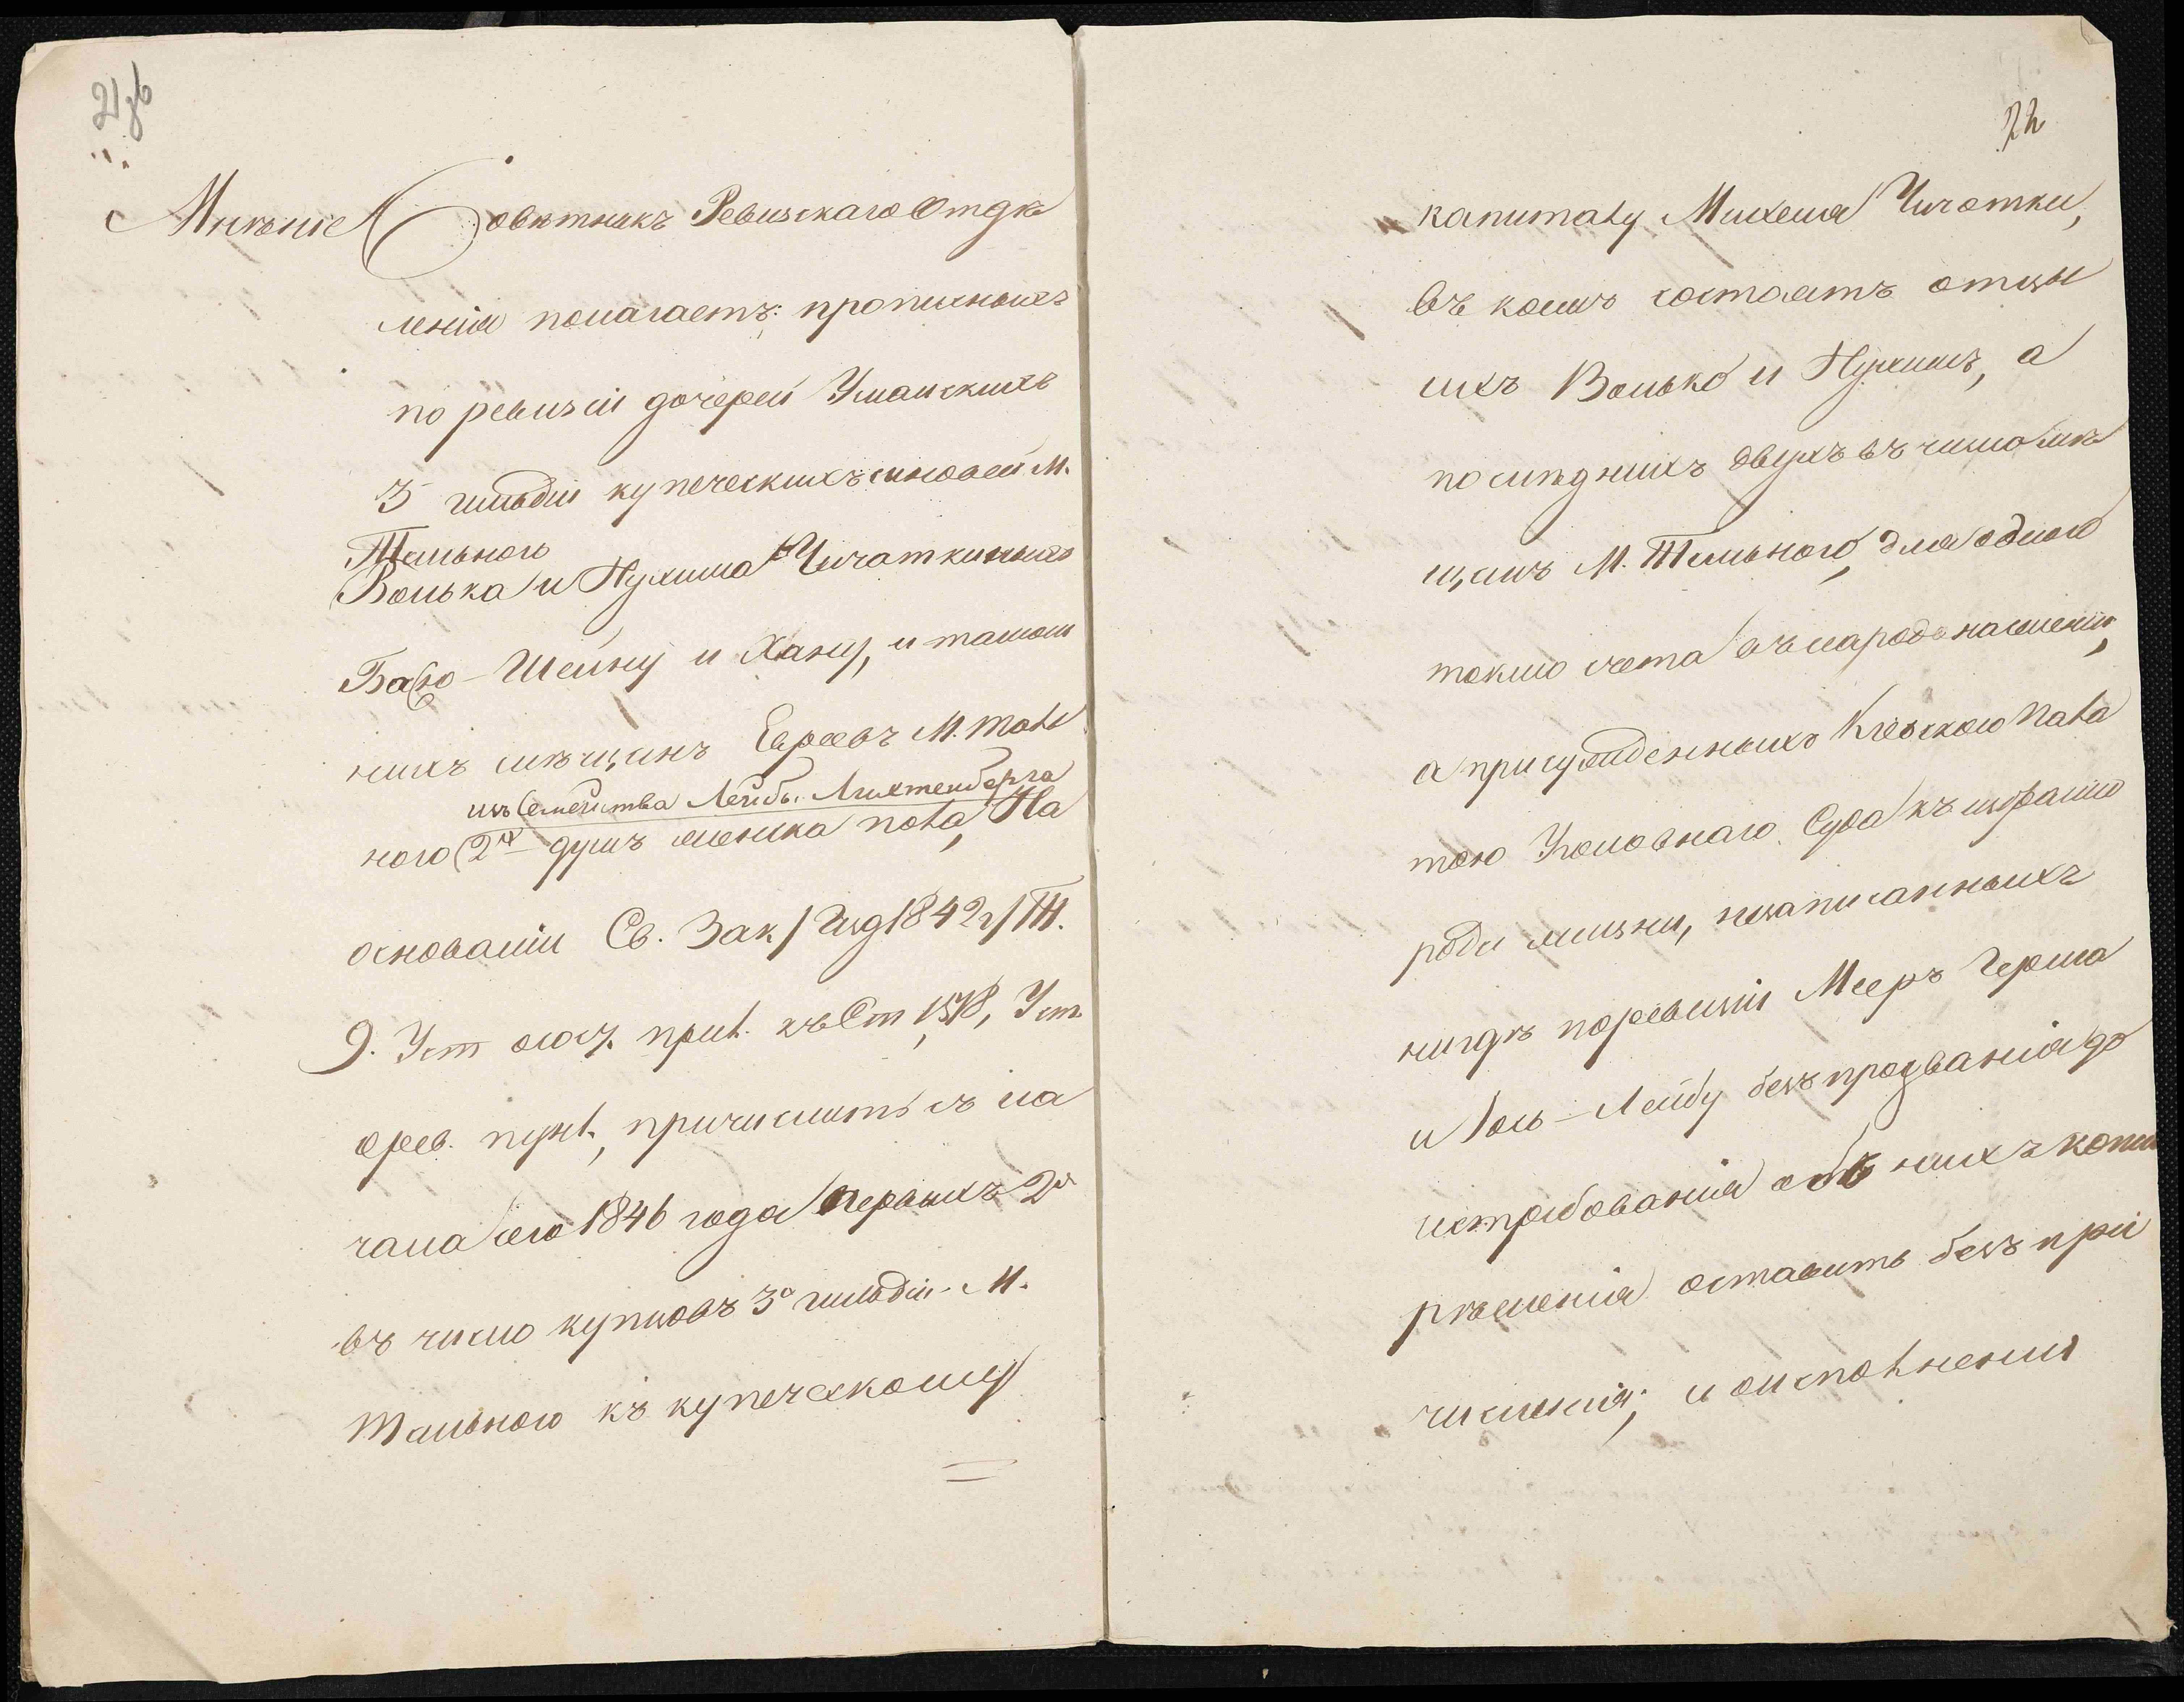 21 зв
Мнѣніе Совѣтникъ Ревизскаго Отдѣ
ленія полагаетъ: прописныхъ
по ревизіи дочерей Уманскихъ
3 гильдіи купеческихъ сыновей М.
Тального
Волька и Нухима Чичоткиныхъ
Басю-Шейну и Хану, и
нихъ мѣщанъ Евреевъ М. Таль
изъ Семейства Лейбы Лихтенберга
ного 2х душъ женска пола, На
основаніи Св. Зак / Изд 1842 г / Т.
9. Уст прил. къ Ст 1518, Уст
о рев. пунк., причислить съ на
чала сего 1846 года первыхъ 2х
въ число купцовъ 3й гильдіи М.
Тального къ купеческому
22
капиталу Михеля Чичотки,
въ коемъ состоятъ отцы
ихъ Волько и Нухимъ, а
послѣднихъ двухъ въ число мѣ
щанъ М. Тального, для одного
токмо счета въ народонаселеніи,
а присужденныхъ Кіевскою Пала
тою Уголовнаго Суда къ избранію
рода жизни, незаписанныхъ
нигдѣ по ревизіи Мееръ Герша
и Іось-Лейбу безъ прозванія до
истребованія объ нихъ копіи
рѣшенія оставить безъ при
численія; и о исполненіи